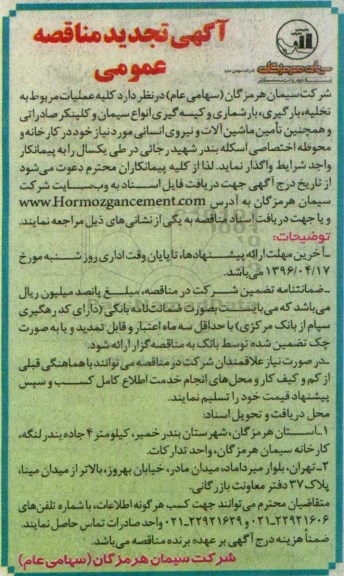 آگهی تجدید مناقصه
عمومی
سیمان هرمزگان
شرکت سیمان هرمزگان (سهامی عام) در نظر دارد کلیه عملیات مربوط به
تخلیه، بارگیری، بارشماری و کیسه گیری انواع سیمان و کلینکر صادراتی
و همچنین تأمین ماشین آلات و نیروی انسانی مورد نیاز خود در کارخانه و
محوطه اختصاصی اسکله بندر شهید رجائی در طی یکسال را به پیمانکار
واجد شرایط واگذار نماید. لذا از کلیه پیمانکاران محترم دعوت می شود
از تاریخ درج آگهی جهت دریافت فایل اسناد به وب سایت شرکت
سیمان هرمزگان به آدرس www.Hormozgancement.com
و یا جهت دریافت اسناد مناقصه به یکی از نشانی های ذیل مراجعه نمایند.
توضیحات:
ـ آخرین مهلت ارائه پیشنهادها، تا پایان وقت اداری روز شنبه مورخ
۱۳۹۶/۰۴/۱۷ می باشد.
ـ ضمانتنامه تضمین شرکت در مناقصه، مبلغ پانصد میلیون ریال
می باشد که می بایست بصورت ضمانتنامه بانکی (دارای کد رهگیری
سپام از بانک مرکزی) با حداقل سه ماه اعتبار و قابل تمدید و یا به صورت
چک تضمین شده توسط بانک به مناقصه گزار ارائه شود.
ـ در صورت نیاز علاقمندان شرکت در مناقصه می توانند با هماهنگی قبلی
از کم و کیف کار و محل های انجام خدمت اطلاع کامل کسب و سپس
پیشنهاد قیمت خود را تسلیم نمایند.
محل دریافت و تحویل اسناد:
۱ـ استان هرمزگان، شهرستان بندر خمیر، کیلومتر ۴ جاده بندر لنگه،
کارخانه سیمان هرمزگان، واحد تدارکات.
۲ـ تهران، بلوار میرداماد، میدان مادر، خیابان بهروز، بالاتر از میدان مینا،
پلاک ۳۷ دفتر معاونت بازرگانی.
متقاضیان محترم می توانند جهت کسب هر گونه اطلاعات، با شماره تلفن های
۲۲۹۲۱۶۰۶-۰۲۱ و ۲۲۹۲۱۶۲۹-۰۲۱ واحد صادرات تماس حاصل نمایند.
ضمناً هزینه درج آگهی بر عهده برنده مناقصه می باشد.
شرکت سیمان هرمزگان (سهامی عام)